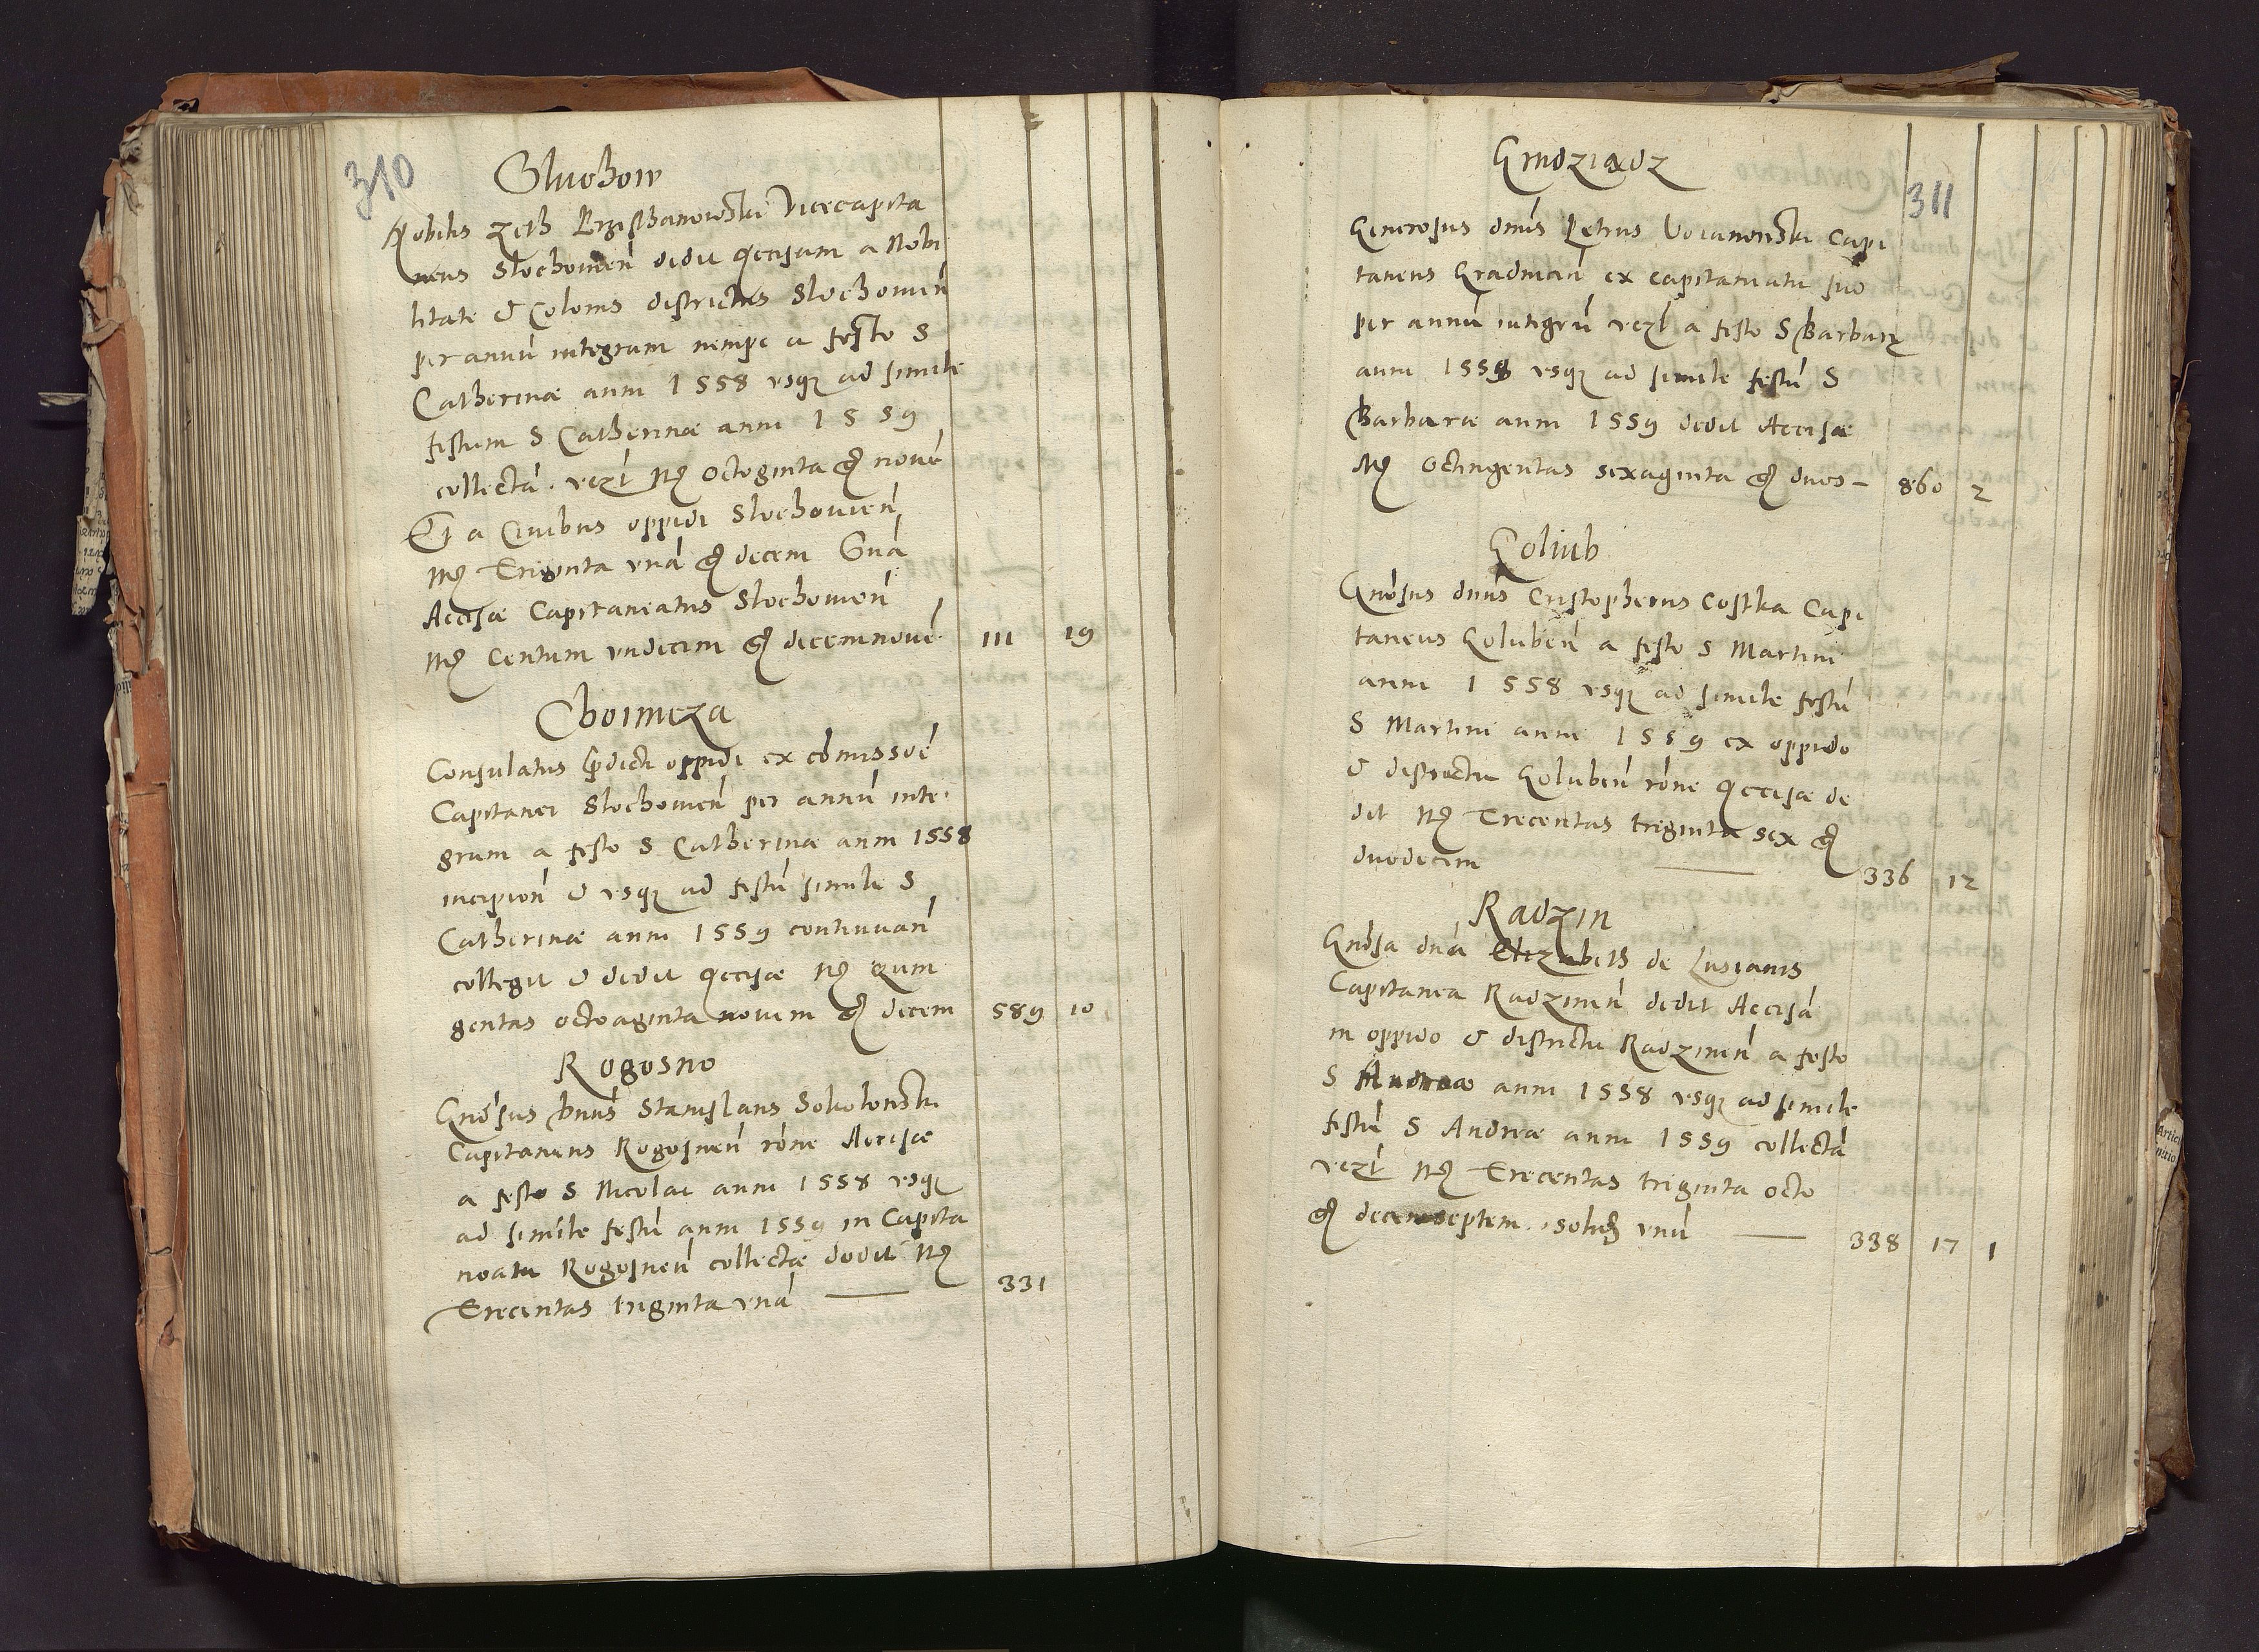 310
Sluchow
Nobilis Zeth Vicecapita
neus Slochowien̄ dedit Accisam a Nobi
litate & Colonis districtus Slochowien̄
per annū integrum nempe a festo S
Catherinæ anni 1558 usq; ad simile
festum S Catherinæ anni 1559
collectā. vezt Mͬ octoginta gͬ novē
Et a Civibus oppidi Slochovien̄
Mͬ Triginta unā gͬ decem Sūā
Accisæ Capitaneatus Slochowien̄
Mͬ Centum undecim gͬ decemnovē 111 19
Choinicza
Consulatus p̄dicti oppidi ex cōmissōe
Capitanei Slochowien̄ per annū inte
grum a festo S Catherinæ anni 1558
incipien̄ & usq; ad festū simile S
Catherinæ anni 1559 continuan̄
collegit & dedit Accisæ Mͬ Quin
gentas octoaginta novem gͬ decem 589 10
Rogosno
Gnōsus Dnūs Stanislaus Sokolowski
Capitaneus Rogosnen̄ rōne Accisæ
a festo S Nicolai anni 1558 usq;
ad simile festū anni 1559 in Capita
neatu Rogosnen̄ collectæ dedit Mͬ
Trecentas triginta unā — 331
311
Grudziadz
Generosus dnūs Petrus Voianowski Capi
taneus Gradnicen̄ ex capitaneatu suo
per annū integrū vezt a festo S Barbarę
anni 1558 usq; ad simile festū S
Barbaræ anni 1559 dedit Accisæ
Mͬ Octingentas sexaginta gͬ duos – 860 2
Goliub
Gnōsus dnūs Cristopherus Costka Capi
taneus Goluben̄ a festo S Martini
anni 1558 usq; ad simile festū
S Martini anni 1559 ex oppido
& districtu Goluben̄ rōne Accisæ de
dit Mͬ Trecentas triginta sex gͬ
duodecim — 336 12
Radzin
Gnōsa dnā Elizabeth de Lusianis
Capitanea Radzinen̄ dedit Accisā
in oppido & districtu Radzinen̄ a festo
S Andreæ anni 1558 usq; ad simile
festū S Andreæ anni 1559 collectā
vezt Mͬ Trecentas triginta octo
gͬ decemseptem solid unū — 338 17 1